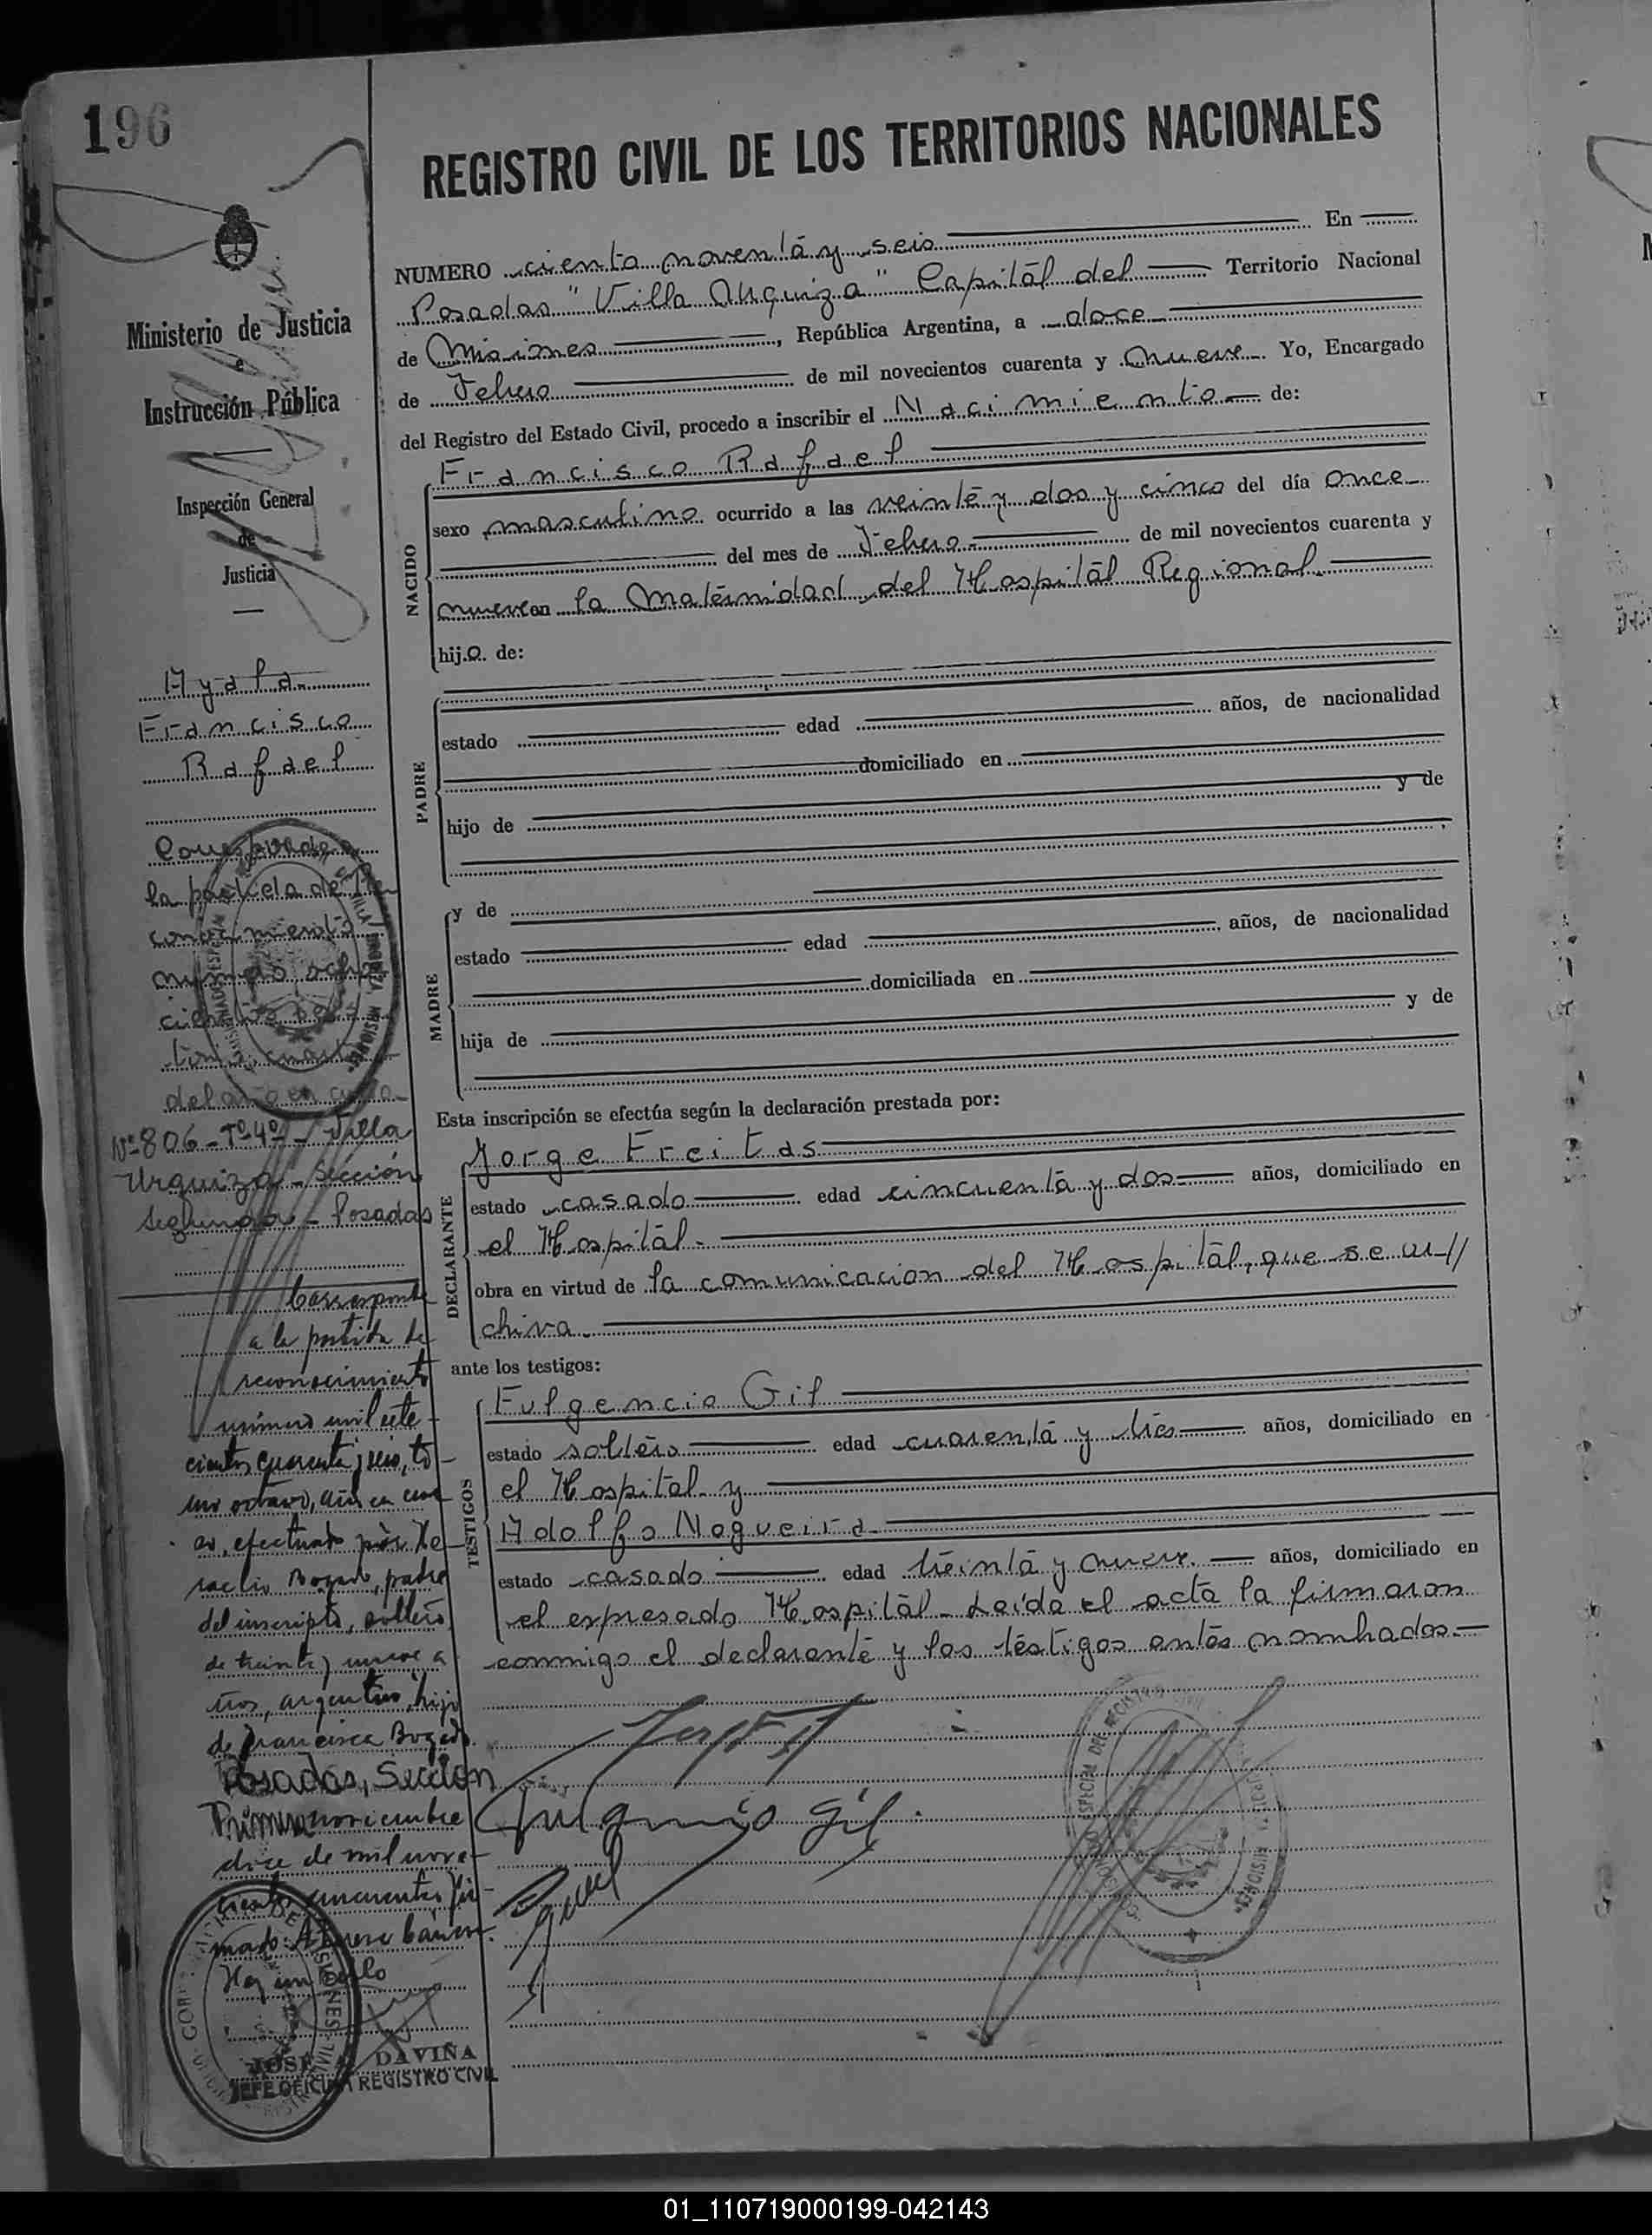 196
REGISTRO CIVIL DE LOS TERRITORIOS NACIONALES
Ministerio de Justicia
e
Instrucción Pública
Inspección General
de
Justicia
Ayala
Francisco
Rafael
Corresponde a
la partida de Re
conocimiento
numero ocho
cientos seis
tomo cuarto
del año en curso
Nº 806 - Tº 4º - Villa
Urquiza - Sección
Segunda - Posadas
Corresponde
a la partida de
reconocimiento
número mil sete-
cientos cuarenta y seis, to-
mo octavo, año en cur
so, efectuado por
Bogado, padre
del inscripto, soltero,
de treinta y nueve a
ños, argentino, hijo
de Francisca Bogado.
Posadas, Sección
Primera noviembre
doce de mil nove-
cientos cincuenta. Fir-
mado:
Hay un sello
JOSE A. DAVIÑA
JEFE OFICINA REGISTRO CIVIL
NUMERO ciento noventa y seis En
Posadas "Villa Urquiza" Capital del Territorio Nacional
de Misiones, República Argentina, a doce
de Febrero de mil novecientos cuarenta y nueve. Yo, Encargado
del Registro del Estado Civil, procedo a inscribir el Nacimiento de:
NACIDO
Francisco Rafael
sexo masculino ocurrido a las veinte y dos y cinco del día once
del mes de Febrero de mil novecientos cuarenta y
nueve en la Maternidad del Hospital Regional.
hijo de:
PADRE
estado edad años, de nacionalidad
domiciliado en
hijo de y de
MADRE
y de
estado edad años, de nacionalidad
domiciliada en
hija de y de
Esta inscripción se efectúa según la declaración prestada por:
DECLARANTE
Jorge Freitas
estado casado edad cincuenta y dos años, domiciliado en
el Hospital.
obra en virtud de la comunicacion del Hospital, que se ar//
chiva.
ante los testigos:
TESTIGOS
Fulgencio Gil
estado soltero edad cuarenta y tres años, domiciliado en
el Hospital y
Adolfo Nogueira
estado casado edad treinta y nueve. años, domiciliado en
el expresado Hospital - Leída el acta la firmaron
conmigo el declarante y los testigos antes nombrados.
Fulgencio Gil.
01_110719000199-042143